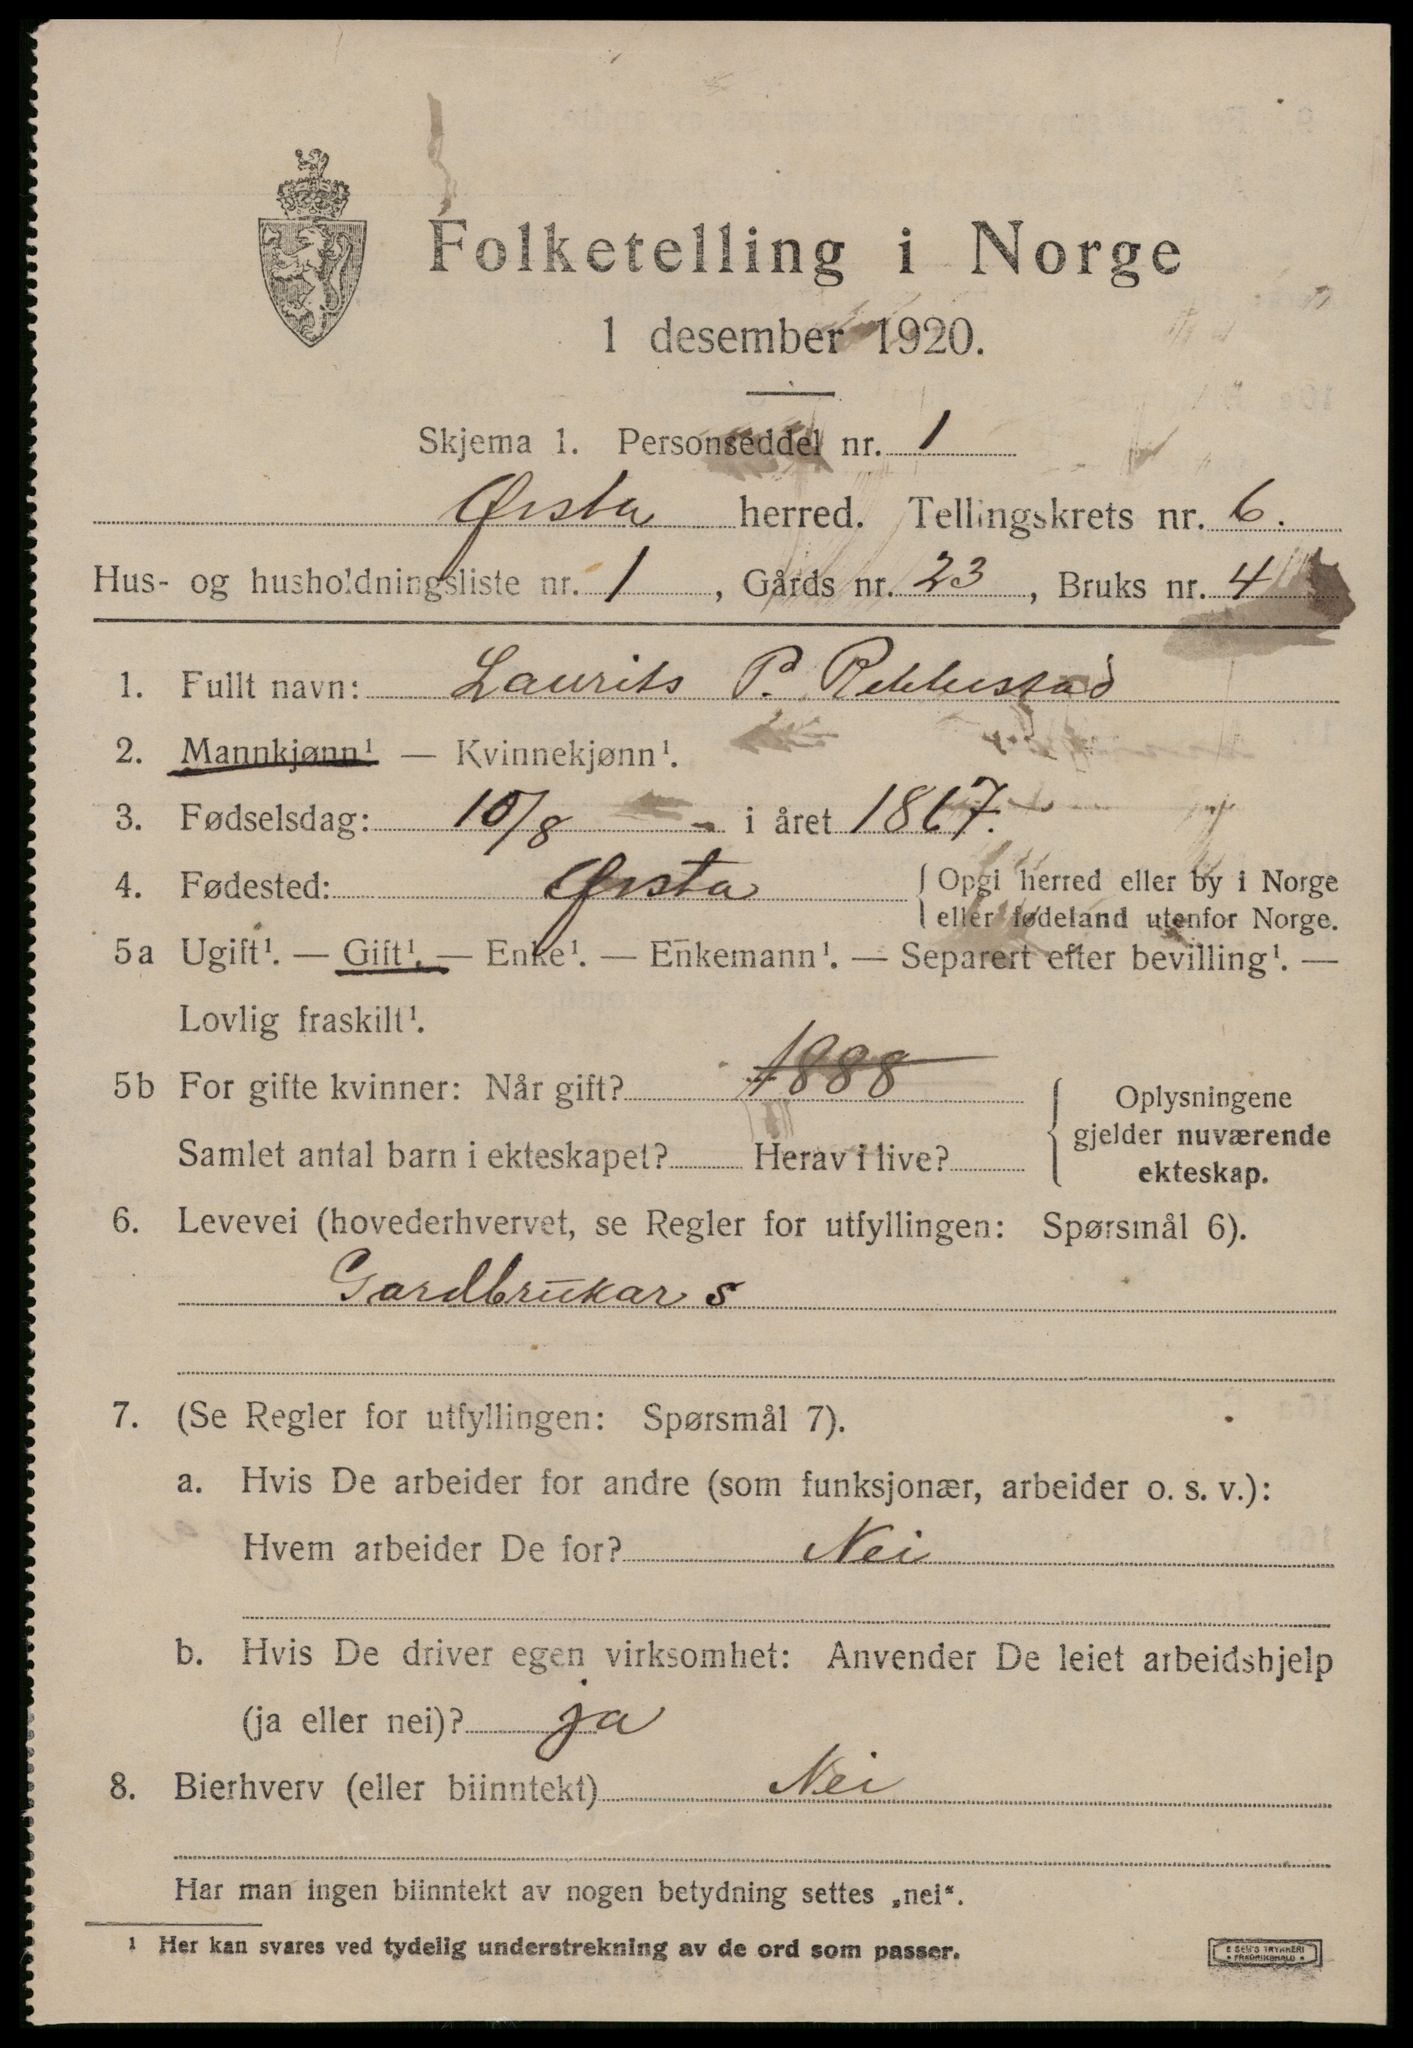 Folketelling i Norge
1 desember 1920.
Skjema 1. Personseddel nr. 1
Ørsta herred. Tellingskrets nr. 6.
Hus- og husholdningsliste nr. 1, Gårds nr. 23, Bruks nr. 4
1. Fullt navn: Laurits P. Rekkestad
2. Mannkjønn¹ — Kvinnekjønn¹.
3. Fødselsdag: 10/8 - i året 1867.
4. Fødested: Ørsta { Opgi herred eller by i Norge
eller fødeland utenfor Norge.
5a Ugift¹. — Gift¹. — Enke¹. — Enkemann¹. — Separert efter bevilling¹. —
Lovlig fraskilt¹.
5b For gifte kvinner: Når gift? 1888
Samlet antal barn i ekteskapet? Herav i live?
{ Oplysningene
gjelder nuværende
ekteskap.
6. Levevei (hovederhvervet, se Regler for utfyllingen: Spørsmål 6).
Gardbrukar s
7. (Se Regler for utfyllingen: Spørsmål 7).
a. Hvis De arbeider for andre (som funksjonær, arbeider o. s. v.):
Hvem arbeider De for? Nei
b. Hvis De driver egen virksomhet: Anvender De leiet arbeidshjelp
(ja eller nei)? ja
8. Bierhverv (eller biinntekt) Nei
Har man ingen biinntekt av nogen betydning settes „nei“.
¹ Her kan svares ved tydelig understrekning av de ord som passer.
E SEM'S TRYKKERI
FREDRIKSHALD